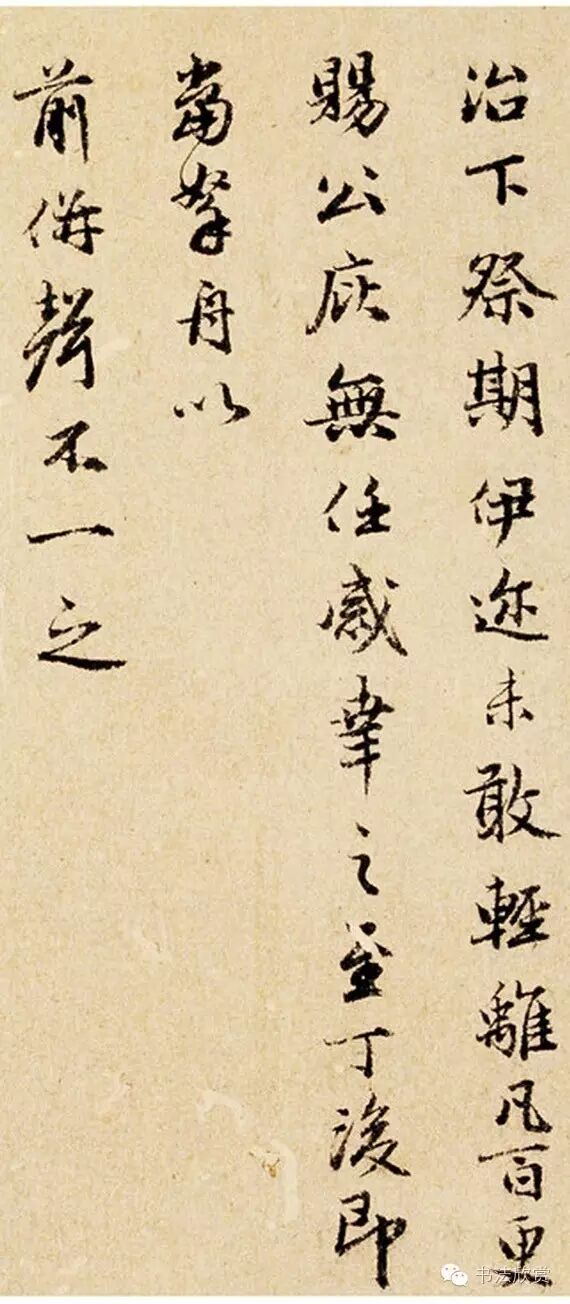 治下祭期伊邇未敢輕離凡百更
賜公庇無任感幸之至丁後即
當拏舟以
前併聲不一之
书法欣赏